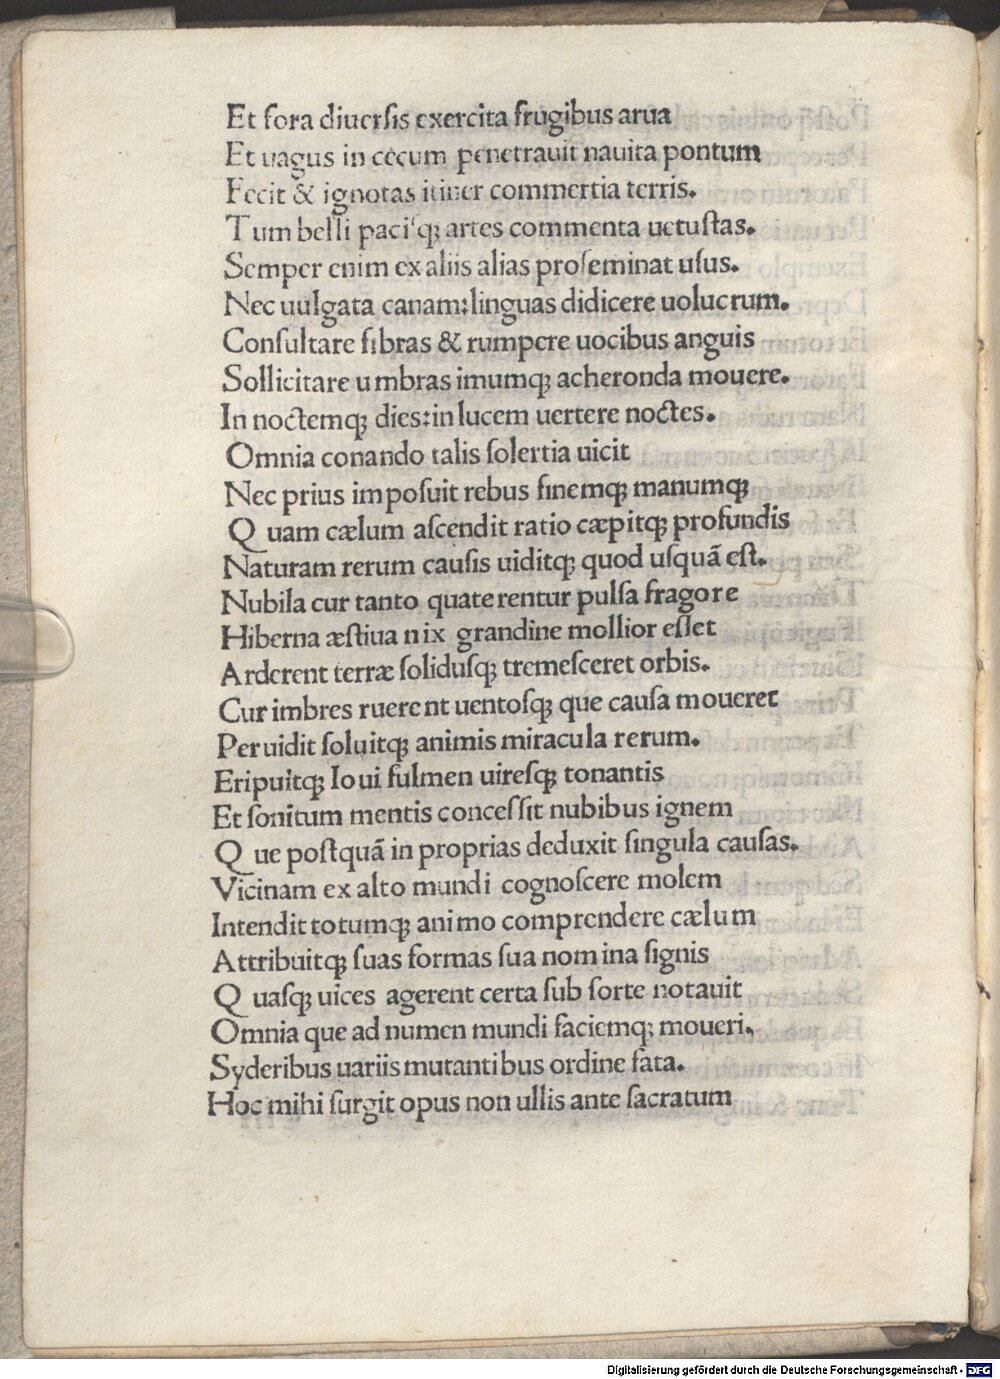 Et fora diuerſis exercita frugibus arua
Et uagus in cęcum penetrauit nauita pontum
Fecit & ignotas itiner commertia terris.
Tum belli paciſqꝫ artes commenta uetuſtas.
Semper enim ex aliis alias proſeminat uſus.
Nec uulgata canam:linguas didicere uolucrum.
Conſultare fibras & rumpere uocibus anguis
Sollicitare umbras imumqꝫ acheronda mouere.
In noctemqꝫ dies:in lucem uertere noctes.
Omnia conando talis ſolertia uicit
Nec prius impoſuit rebus finemqꝫ manumqꝫ
Quam cælum aſcendit ratio cæpitqꝫ profundis
Naturam rerum cauſis uiditqꝫ quod uſquã eſt.
Nubila cur tanto quaterentur pulſa fragore
Hiberna æſtiua nix grandine mollior eſſet
Arderent terræ ſoliduſqꝫ tremeſceret orbis.
Cur imbres ruerent uentoſqꝫ que cauſa moueret
Peruidit ſoluitqꝫ animis miracula rerum.
Eripuitqꝫ Ioui fulmen uireſqꝫ tonantis
Et ſonitum mentis conceſſit nubibus ignem
Que poſtquã in proprias deduxit ſingula cauſas.
Vicinam ex alto mundi cognoſcere molem
Intendit totumqꝫ animo comprendere cælum
Attribuitqꝫ ſuas formas ſua nomina ſignis
Quaſqꝫ uices agerent certa ſub ſorte notauit
Omnia que ad numen mundi faciemqꝫ moueri.
Syderibus uariis mutantibus ordine fata.
Hoc mihi ſurgit opus non ullis ante ſacratum
Digitalisierung gefördert durch die Deutsche Forschungsgemeinschaft - DFG